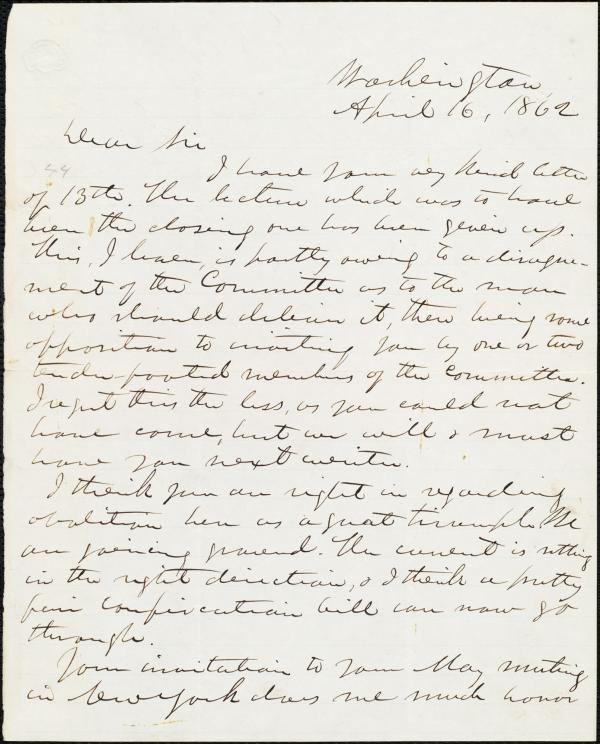 Washington,
April 16, 1862
Dear Sir
44
I have your very kind letter
of 13th. The lecture which was to have
been the closing one has been given up.
This, I learn, is partly owing to a disagree-
ment of the Committee as to the man
who should deliver it, there being some
opposition to inviting you by one or two
tender-footed members of the Committee.
I regret this the less, as you could not
have come, but we will & must
have you next winter.
I think you are right in regarding
abolition here as a great triumph. We
are gaining ground. The current is setting
in the right direction, & I think a pretty
fair confiscation bill can now go
through.
Your invitation to your May meeting
in New York does me much honor